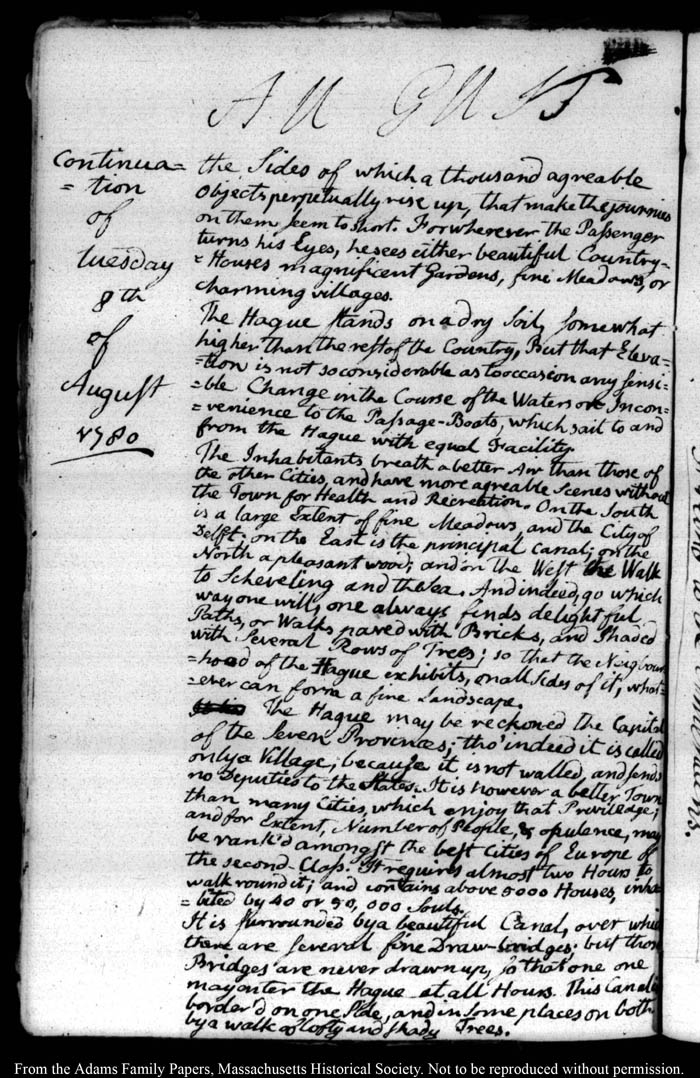 AUGUST
Continua=
=tion
of
tuesday
8th
of
August
1780
the Sides of which a thousand agreable
Objects perpetually rise up, that make the journies
on them seem to short. For wherever the Passenger
turns his Eyes, he sees either beautiful Country-
=Houses magnificent Gardens, fine Meadows, or
charming villages.
The Hague stands on a dry Soil, somewhat
higher than the rest of the Country, But that Eleva=
=tion is not so considerable as to occasion any sensi=
=ble Change in the Course of the Waters or Incon=
=venience to the Passage-Boats, which sail to and
from the Hague with equal Facility.
The Inhabitants breath a better Air than those of
the other Cities, and have more agreable Scenes without
the Town for Health and Recreation. On the South
is a large Extent of fine Meadows, and the City of
Delft: on the East is the principal Canal; on the
North a pleasant wood; and on the West the Walk
to Scheveling and the sea. And indeed, go which
way one will, one always finds delightful
Paths, or Walks paved with Bricks, and Shaded
with Several Rows of Trees; so that the Neigbour
=hood of the Hague exhibits, on all Sides of it, what=
=ever can form a fine Landscape.
The Hague may be reckoned the Capital
of the Seven Provinces; tho' indeed it is called
only a Village; because it is not walled, and sends
no Deputies to the States. It is however a better Town
than many Cities, which enjoy that Priviledge;
and for Extent, Number of People, & opulence, may
be rank'd amongst the best Cities of Europe of
the second Class. It requires almost two Hours to
walk round it; and contains above 5000 Houses, inha
=bited by 40 or 50,000 Souls.
It is surrounded by a beautiful Canal, over which
there are several fine Draw-bridges: but those
Bridges are never drawn up, so that one one
may enter the Hague at all Hours. This Canal is
border'd on one Side, and in some places on both
by a walk of lofty and shady Trees.
From the Adams Family Papers, Massachusetts Historical Society. Not to be reproduced without permission.